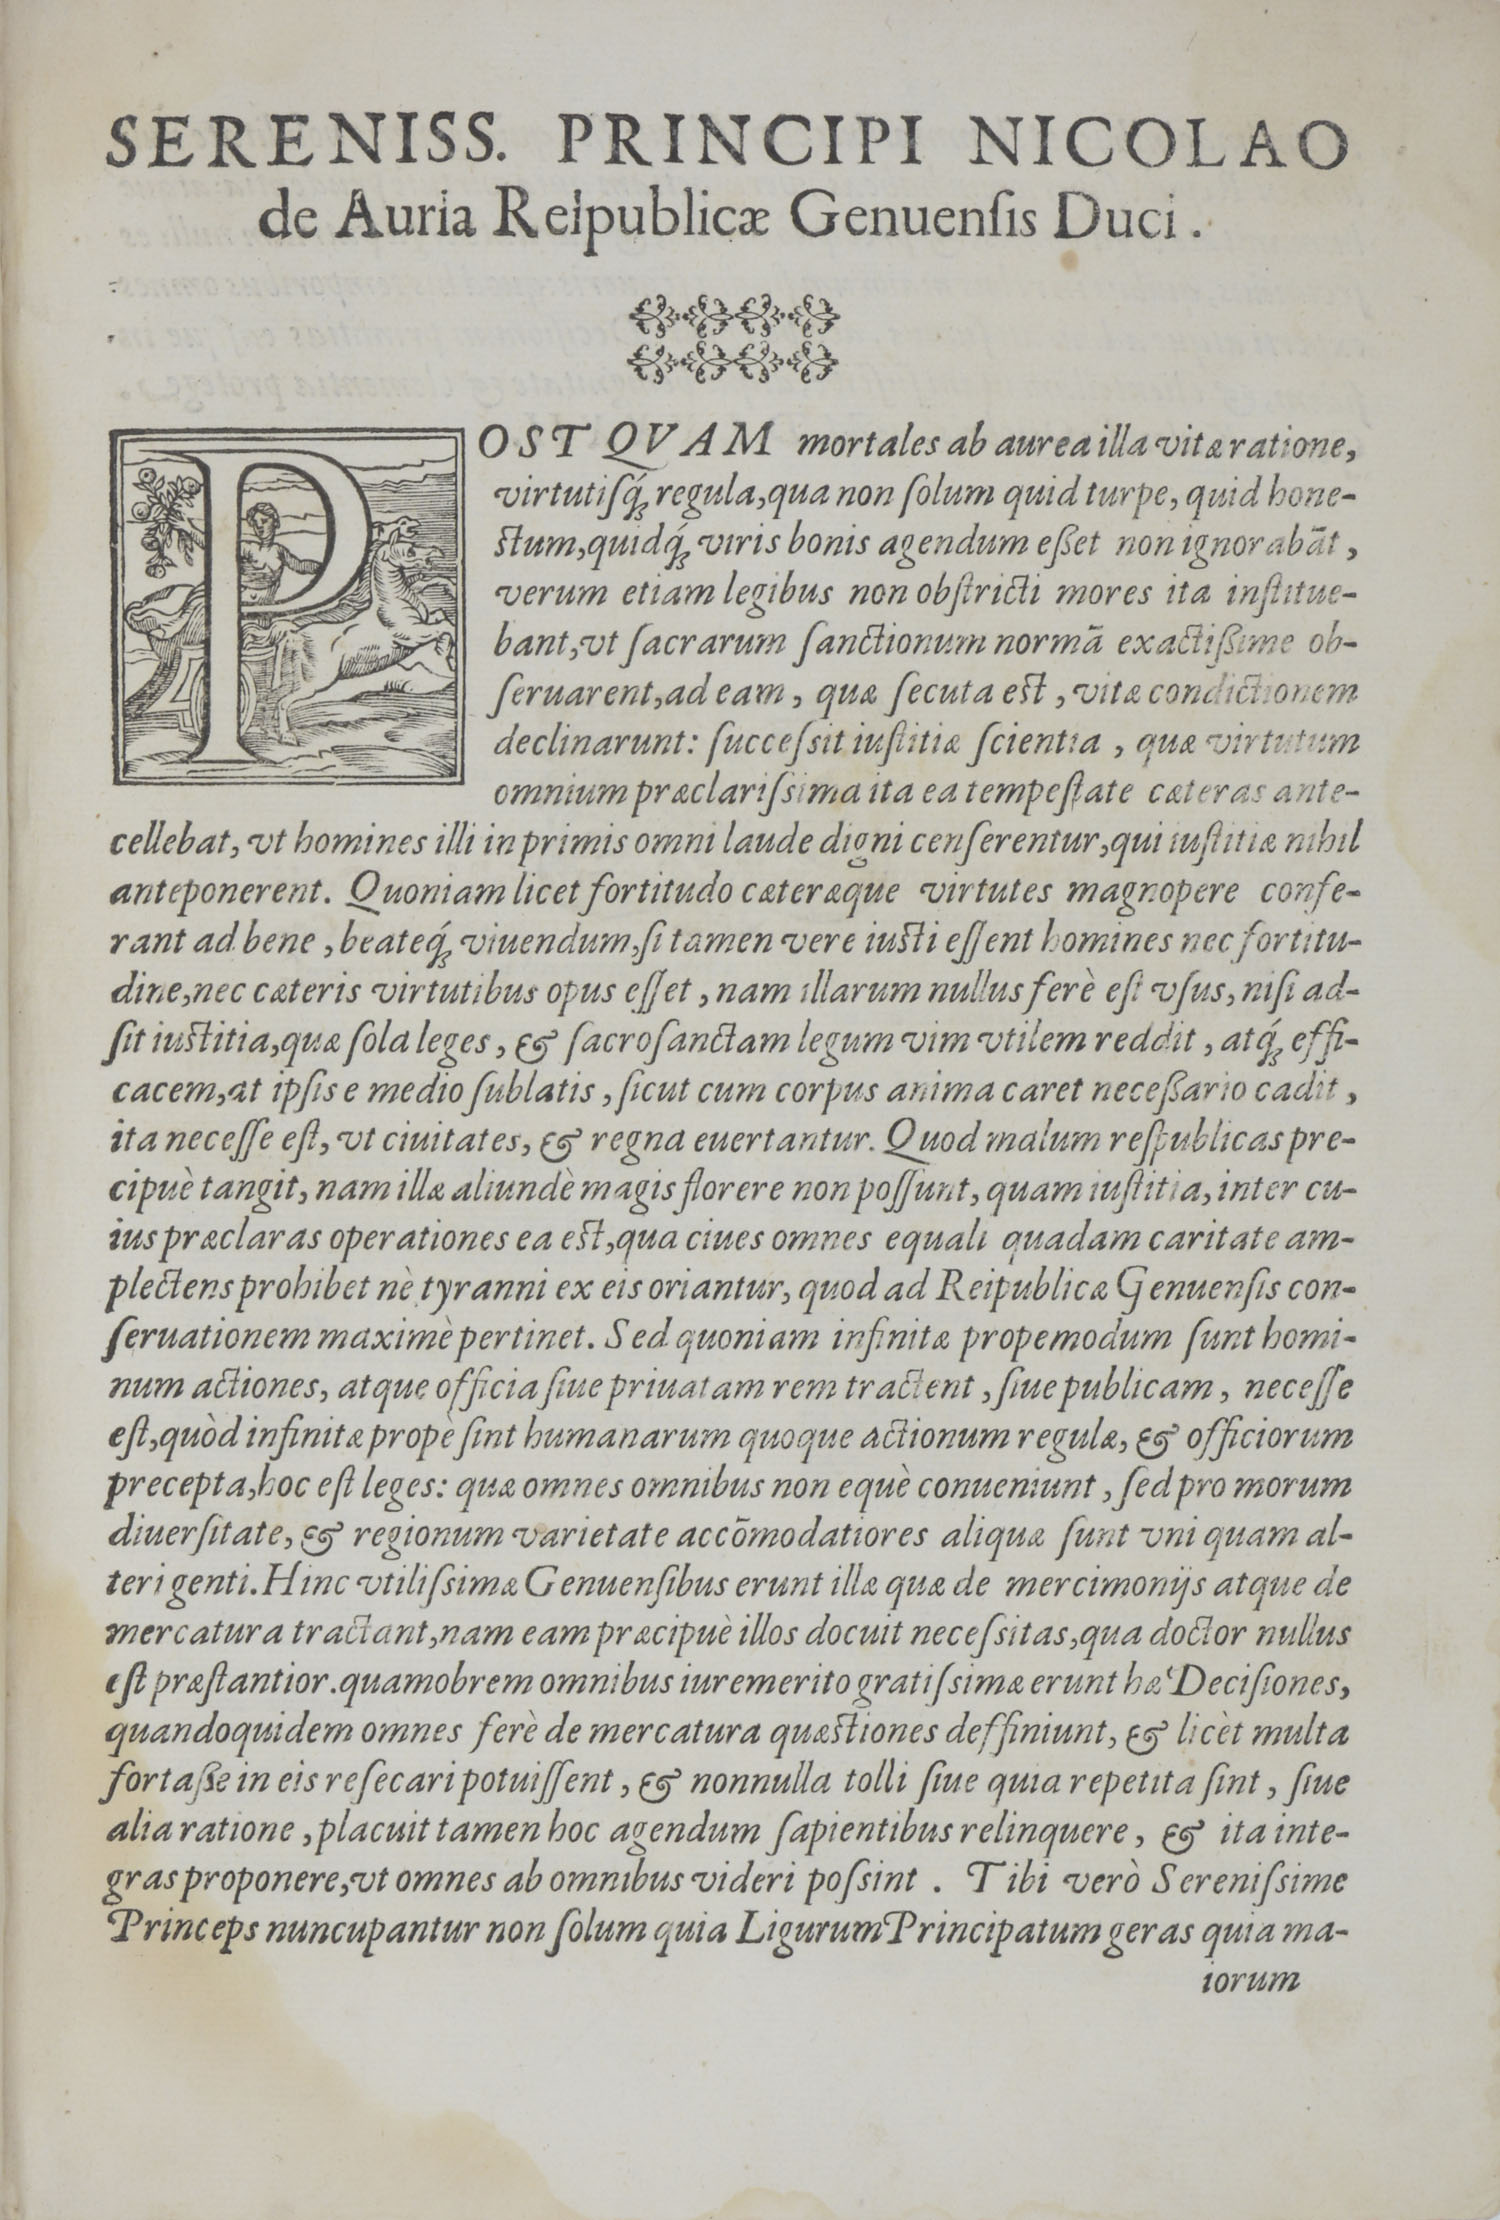 SERENISS. PRINCIPI NICOLAO
de Auria Reipublicæ Genuenſis Duci.
POSTQVAM mortales ab aurea illa vitæ ratione,
virtutiſq́; regula, qua non ſolum quid turpe, quid hone-
ſtum, quidq́; viris bonis agendum eßet non ignorabāt,
verum etiam legibus non obſtricti mores ita inſtitue-
bant, vt ſacrarum ſanctionum normā exactißime ob-
ſeruarent, ad eam, quæ ſecuta eſt, vitæ condictionem
declinarunt: ſucceſsit iuſtitiæ ſcientia, quæ virtutum
omnium præclariſsima ita ea tempeſtate cæteras ante-
cellebat, vt homines illi in primis omni laude digni cenſerentur, qui iuſtitiæ nihil
anteponerent. Quoniam licet fortitudo cæteræque virtutes magnopere confe-
rant ad bene, beateq́; viuendum, ſi tamen vere iuſti eſſent homines nec fortitu-
dine, nec cæteris virtutibus opus eſſet, nam illarum nullus ferè eſt vſus, niſi ad-
ſit iuſtitia, quæ ſola leges, & ſacroſanctam legum vim vtilem reddit, atq́; effi-
cacem, at ipſis e medio ſublatis, ſicut cum corpus anima caret neceßario cadit,
ita neceſſe eſt, vt ciuitates, & regna euertantur. Quod malum reſpublicas pre-
cipuè tangit, nam illæ aliundè magis florere non poſſunt, quam iuſtitia, inter cu-
ius præclaras operationes ea eſt, qua ciues omnes equali quadam caritate am-
plectens prohibet nè tyranni ex eis oriantur, quod ad Reipublicæ Genuenſis con-
ſeruationem maximè pertinet. Sed quoniam infinitæ propemodum ſunt homi-
num actiones, atque officia ſiue priuatam rem tractent, ſiue publicam, neceſſe
eſt, quòd infinitæ propè ſint humanarum quoque actionum regulæ, & officiorum
precepta, hoc eſt leges: quæ omnes omnibus non equè conueniunt, ſed pro morum
diuerſitate, & regionum varietate accōmodatiores aliquæ ſunt vni quam al-
teri genti. Hinc vtiliſsimæ Genuenſibus erunt illæ quæ de mercimonijs atque de
mercatura tractant, nam eam præcipuè illos docuit neceſsitas, qua doctor nullus
eſt præſtantior. quamobrem omnibus iure merito gratiſsimæ erunt hæ Deciſiones,
quandoquidem omnes ferè de mercatura quæſtiones deffiniunt, & licèt multa
fortaße in eis reſecari potuiſſent, & nonnulla tolli ſiue quia repetita ſint, ſiue
alia ratione, placuit tamen hoc agendum ſapientibus relinquere, & ita inte-
gras proponere, vt omnes ab omnibus videri poſsint. Tibi verò Sereniſsime
Princeps nuncupantur non ſolum quia Ligurum Principatum geras quia ma-
iorum